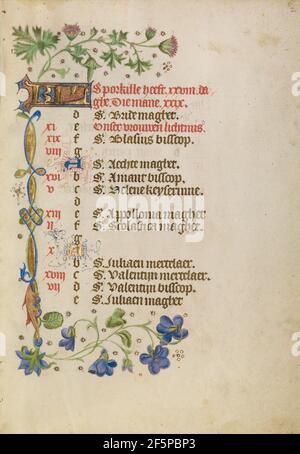 KL Sporkille heeft .xxviii. da
ghe. Die mane .xxix.
d S. Bride magher.
xi e Onser vrouwen lichtmis.
xix f S. Blasius biscop.
viii g
A S. Aechte magher.
xvi b S. Amant biscop.
v c S. Helene keyserinne.
d
xiii e S. Appollonia magher
ii f S. Scolastica magher.
g
x A
b S. Juliaen mertelaer.
xviii c S. Valentijn mertelaer.
vii d S. Valentijn biscop.
e S. Juliaen magher
alamy
Image ID: 2F5PBP3
www.alamy.com